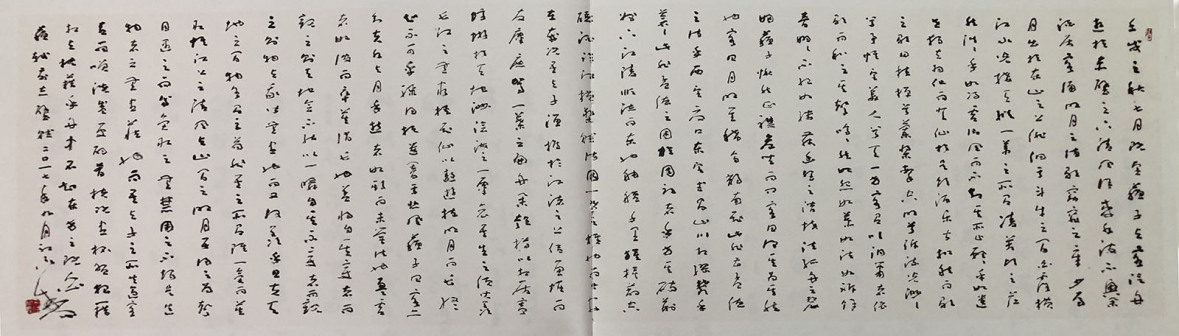 壬戌之秋七月既望蘇子與客泛舟
遊於赤壁之下清風徐來水波不興
舉酒屬客誦明月之詩歌窈窕之章少焉
月出於東山之上徘徊于斗牛之間白露橫
江水光接天縱一葦之所如凌萬頃之茫
然浩浩乎如馮虛御風而不知其所止飄飄乎如遺
世獨立羽化而登仙於是飲酒樂甚扣舷而歌
之歌曰桂棹兮蘭槳擊空明兮溯流光渺渺
兮予懷望美人兮天一方客有吹洞簫者倚
歌而和之其聲嗚嗚然如怨如慕如泣如訴餘
音嫋嫋不絕如縷舞幽壑之潛蛟泣孤舟之嫠
婦蘇子愀然正襟危坐而問客曰何為其然
也客曰月明星稀烏鵲南飛此非孟德
之詩乎西望夏口東望武昌山川相繆鬱乎
蒼蒼此非孟德之困於周郎者乎方其破荊
州下江陵順流而東也舳艫千里旌旗蔽空
釃酒臨江橫槊賦詩固一世之雄也而今安
在哉況吾與子漁樵於江渚之上侶魚蝦而
友麋鹿駕一葉之扁舟舉匏樽以相屬寄
蜉蝣於天地渺滄海之一粟哀吾生之須臾羨
長江之無窮挾飛仙以遨遊抱明月而長終
知不可乎驟得托遺響於悲風蘇子曰客亦
知夫水與月乎逝者如斯而未嘗往也盈虛
者如彼而卒莫消長也蓋將自其變者而
觀之則天地曾不能以一瞬自其不變者而觀
之則物與我皆無盡也而又何羨乎且夫天
地之間物各有主苟非吾之所有雖一毫而莫
取惟江上之清風與山間之明月耳得之而為聲
目遇之而成色取之無禁用之不竭是造
物者之無盡藏也而吾與子之所共適客
喜而笑洗盞更酌肴核既盡杯盤狼藉
相與枕藉乎舟中不知東方之既白
蘇軾前赤壁賦二〇一七年九月